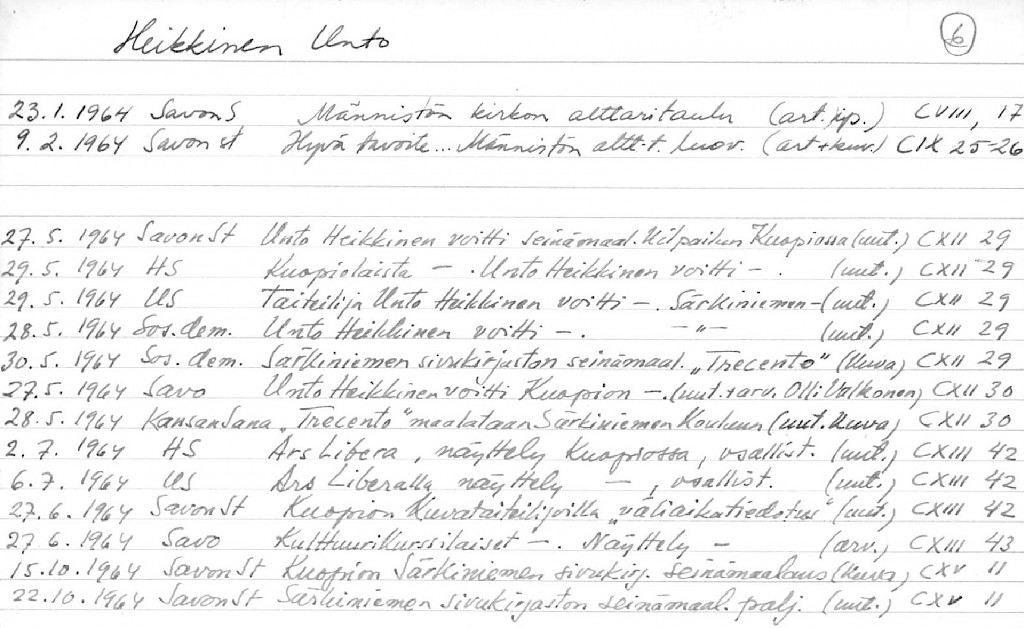 Heikkinen Unto 6
23.1.1964 SavonS Männistön kirkon alttaritaulu (art. kp.) CVIII, 17
9. 2. 1964 Savon st Hyvä tavoite... Männistön altt.t. luov. (art+kuv.) CIX 25-26
27. 5. 1964 SavonSt Unto Heikkinen voitti seinämaal. kilpailun Kuopiossa (uut.) CXII 29
29. 5. 1964 HS Kuopiolaista – . Unto Heikkinen voitti – . (uut.) CXII 29
29. 5. 1964 US Taiteilija Unto Heikkinen voitti –. Särkiniemen – (uut.) CXII 29
28. 5. 1964 Sos.dem. Unto Heikkinen voitti – . –"– (uut.) CXII 29
30. 5. 1964 Sos. dem. Särkiniemen sivukirjaston seinämaal. "Trecento" (kuva) CXII 29
27.5. 1964 Savo Unto Heikkinen voitti Kuopion –. (uut.+arv. Olli Valkonen) CXII 30
28.5. 1964 KansanSana "Trecento" maalataan Särkiniemen kouluun (uut. kuva) CXII 30
2. 7. 1964 HS Ars Libera, näyttely Kuopiossa, osallist. (uut.) CXIII 42
6.7. 1964 US Ars Liberalla näyttely – , osallist. (uut.) CXIII 42
27. 6. 1964 SavonSt Kuopion kuvataiteilijoilla "väliaikatiedotus" (uut.) CXIII 42
27 6. 1964 Savo Kulttuurikurssilaiset – . Näyttely – (arv.) CXIII 43
15.10.1964 SavonSt Kuopion Särkiniemen sivukirj. seinämaalaus (kuva) CXV 11
22.10.1964 SavonSt Särkiniemen sivukirjaston seinämaal. palj. (uut.) CXV 11